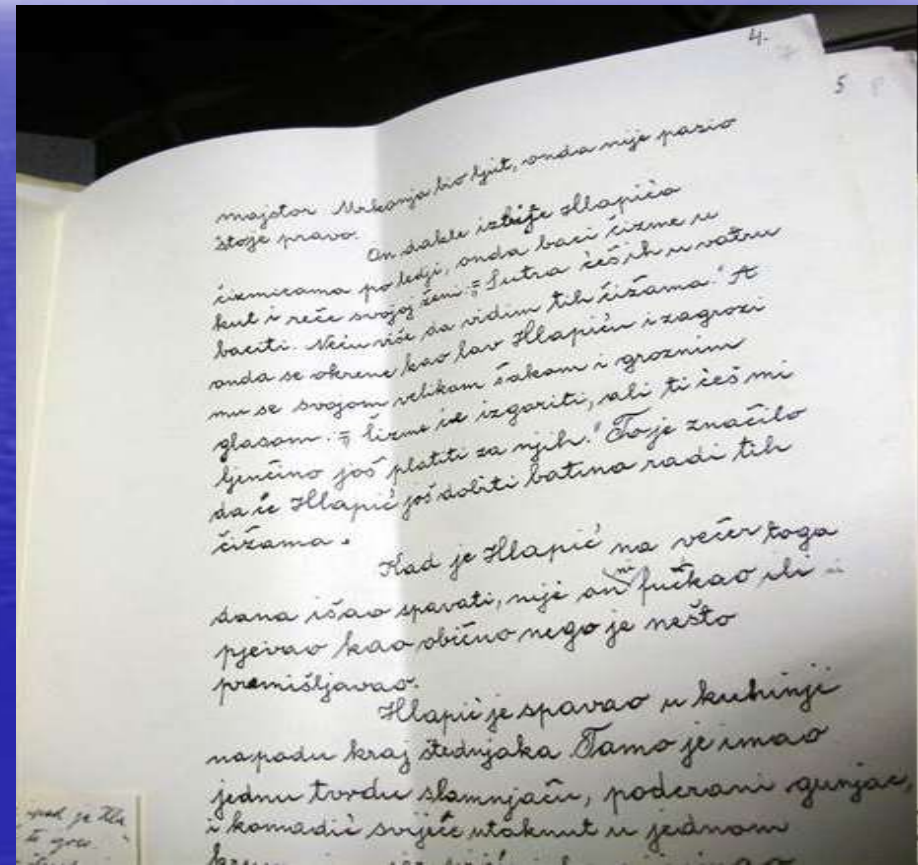 4.
5
majstor Mrkonja bio ljut, onda nije pazio
štoje pravo.
On dakle izbije Hlapića
čizmicama po ledji, onda baci čizme u
kut i reče svojoj ženi: „Sutra ćeš ih u vatru
baciti. Neću više da vidim tih čižama." A
onda se okrene kao lav Hlapiću i zagrozi
mu se svojom velikom šakom i groznim
glasom: „Čizme će izgoriti, ali ti ćeš mi
ljenčino još platiti za njih." To je značilo
da će Hlapić još dobiti batina radi tih
čižama.
Kad je Hlapić na večer toga
dana išao spavati, nije on ni fućkao ili
pjevao kao obično nego je nešto
premišljavao.
Hlapić je spavao u kuhinji
napodu kraj štednjaka Tamo je imao
jednu tvrdu slamnjaču, poderani gunjac,
i komadić svijeće utaknut u jednom